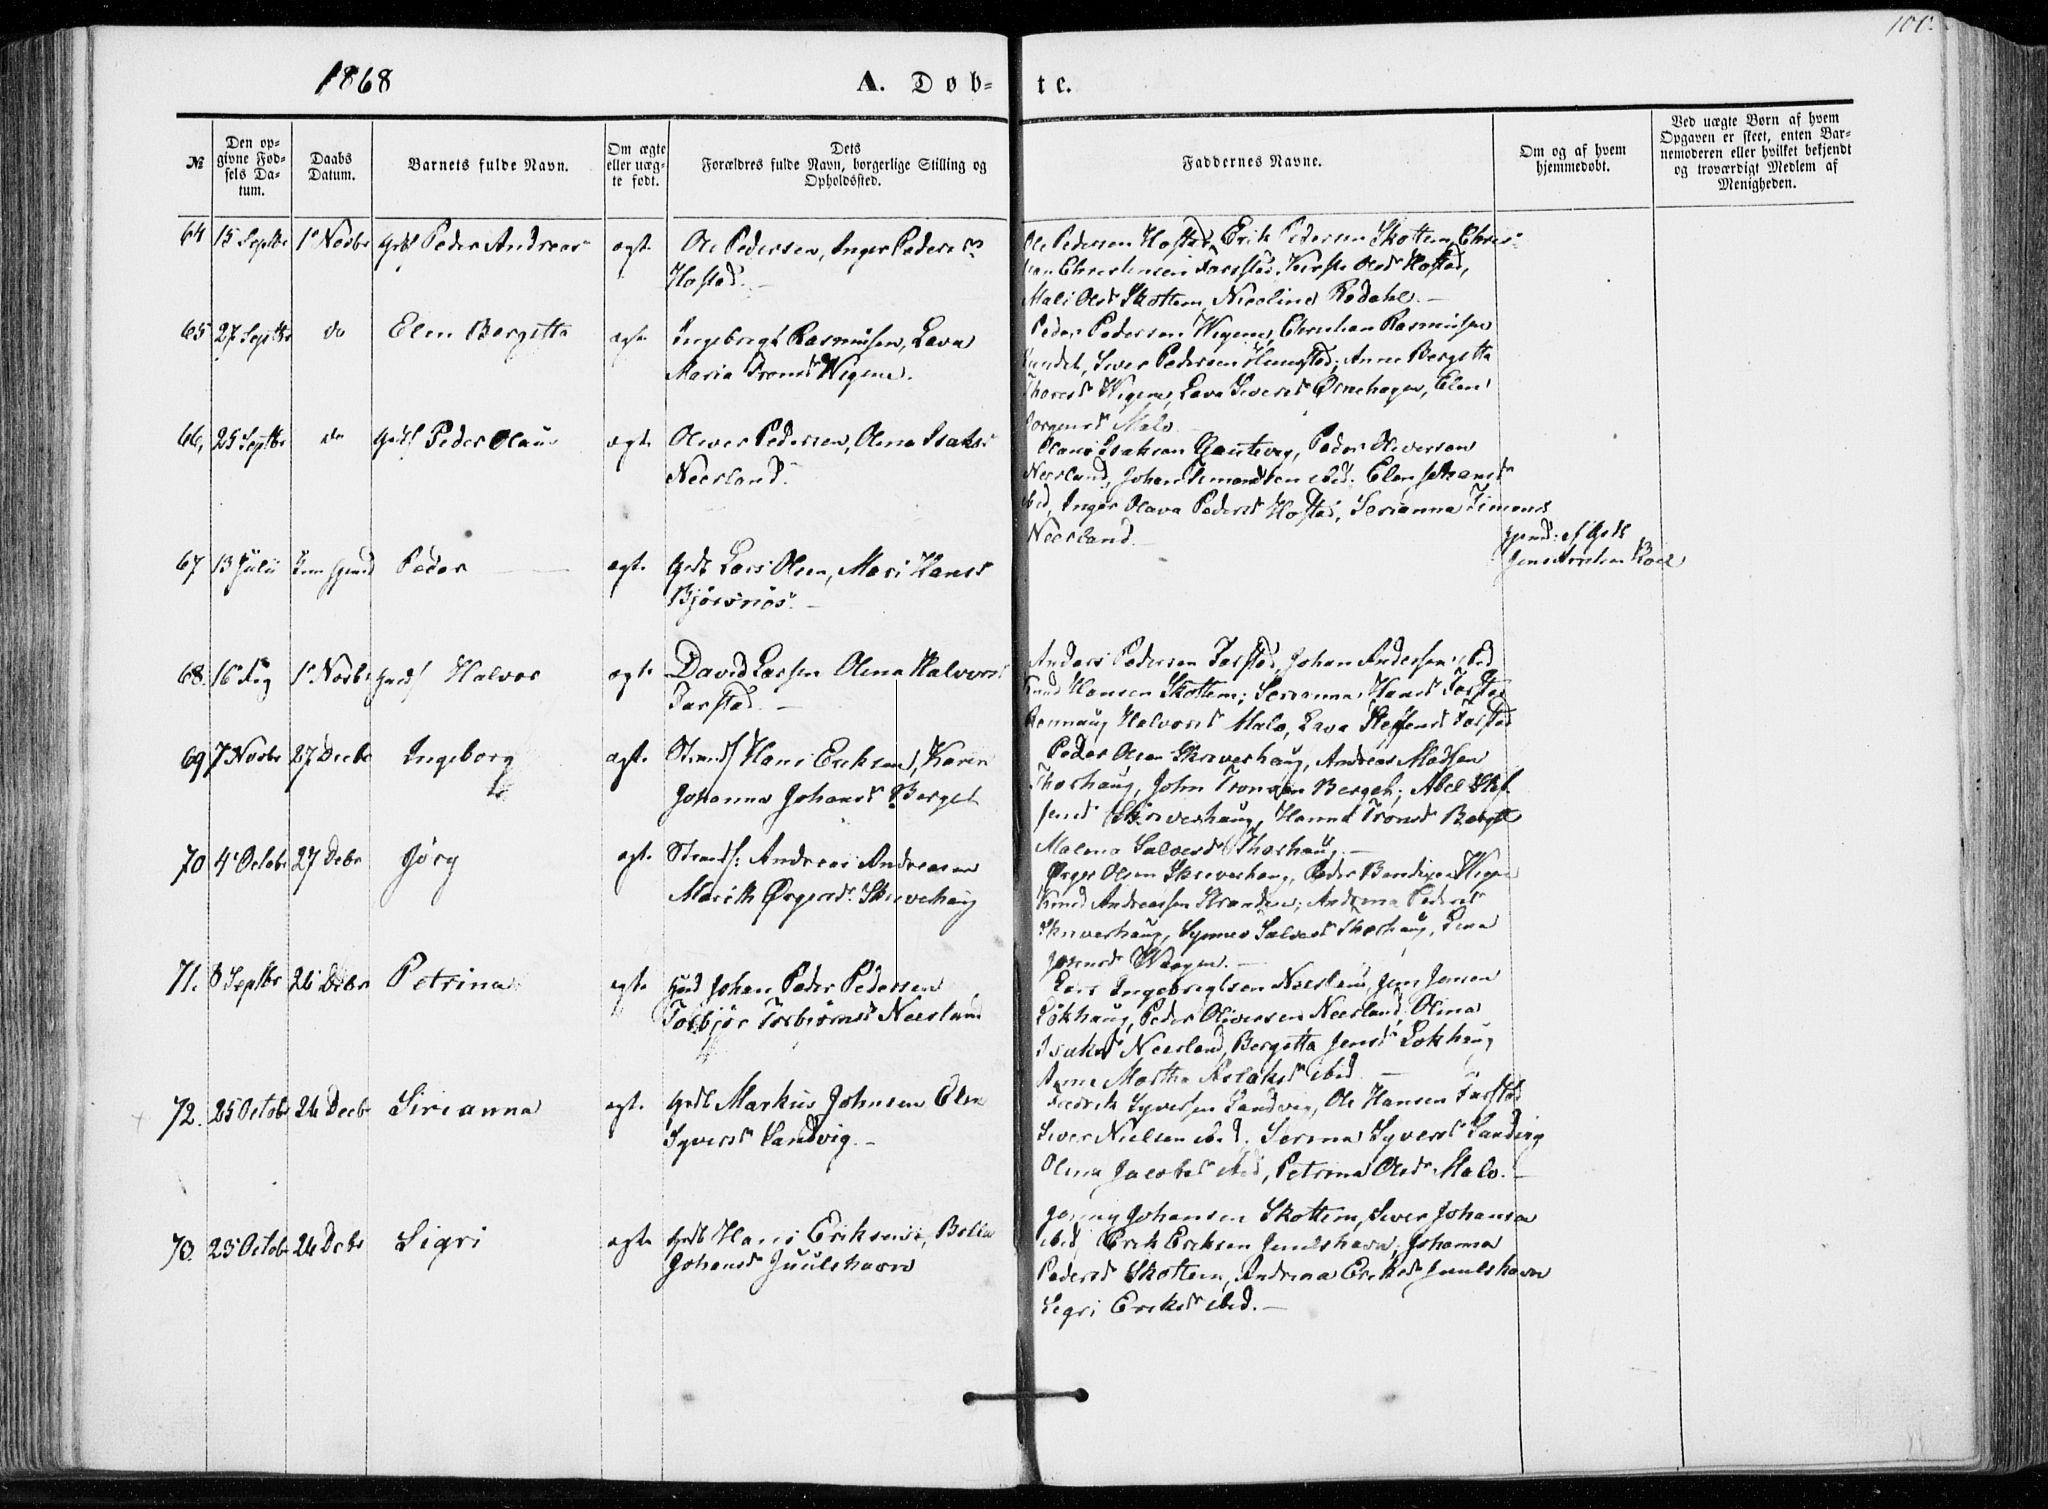 100.
1868
A. Døb-
te.
№
Den op-
givne Fød-
sels Da-
tum.
Daabs
Datum.
Barnets fulde Navn.
Om ægte
eller uæg-
te født.
Dets
Forældres fulde Navn, borgerlige Stilling og
Opholdssted.
Faddernes Navne.
Om og af hvem
hjemmedøbt.
Ved uægte Børn af hvem
Opgaven er skeet, enten Bar-
nemoderen eller hvilket bekjendt
og troværdigt Medlem af
Menigheden.
64 15 Septbr 1 Novbr Peder Andreas ægte Ole Pedersen, Inger Peders
Hostad.
Ole Pedersen Hostad, Erik Pedersen Skottem, Chris-
Christensen Farstad, Olsd Hostad,
Mali Olsd Skottem, Nicoline Rødahl. —
65 27 Septbr do Elen Bergitta ægte Ingebrigt Rasmusen, Lava
Maria Wigene.
Peder Pedersen Wigene, Christian Rasmusen
Sundet, Siver Pedersen Hunstad, Anne Bergitta
Wigene, Lava Siversd Ørnehagen, Elen
Malo
66, 25 Septbr do Peder Olaus ægte Oliver Pedersen, Olena Isaksd
Neerland.
Isaksen Gautevig, Peder Oliversen
Neerland, Johan ibid. Elen
ibid, Inger Olava Pedersd Hostad, Serianna Simonsd
Neerland. —
67 13 Juli Peder — ægte Grdb Lars Olsen, Mari Hansd
Bjørsnøs. —
68. 16 Aug 1 Novbr Halvor ægte David Larsen Olena Halvorsd
Farstad. —
Anders Pedersen Farstad, Johan Andersen ibid
Knud Hansen Skottem; Serianna Hansd Farstad
Rannaug Halvorsd Malo, Lava Steffensd Farstad
69 7 Novbr 27 Decbr Ingeborg ægte Hans Eriksen, Karen
Johanna Johansd Berget
Peder Olsen Skriverhaug, Andreas Madsen
Thorhaug, John Tronsen Berget; Abel Stef-
fensd Skriverhaug, Hanna Tronsd Berget
Malena Thorhaug. —
70 4 Octobr 27 Debr Jørg ægte Andreas Andreasen
Marith Ørgersd Skriverhaug
Ørger Olsen Skriverhaug, Peder Bendixen
Knud Andreassen Stranden; Andrina Pedersd
Skriverhaug, Synnev Thorhaug, Lena
Waagen. —
71. 8 Septbr 26 Debr Petrina ægte Johan Peder Pedersen
Torbjør Torbjørnsd Neerland
Lars Ingebrigtsen Neerland, Jens Jensen
Løkhaug, Peder Oliversen Neerland, Olina
Isaksd Neerland, Bergitta Jensd Løkhaug
Anne Martha Aslaksd ibid. —
72. 25 Octobr 26 Decbr Sirianna ægte Grdb Markus Johnsen Elen
Syversd Sandvig. —
Fredrik Syversen Sandvig, Ole Hansen Farstad
Siver Nielsen ibid. Serina Syversd Sandvig
Olina Jacobsd ibid, Petrina Olsd Malo. —
73. 25 Octobr 26 Debr Sigri ægte Grdb Hans Eriksen, Bella
Johansd Juulshavn
Johansen Skottem, Siver Johansen
ibid, Erik Eriksen Juulshavn; Johanna
Pedersd Skottem, Andrina Eriksd Juulshavn
Sigri Eriksd ibid. —